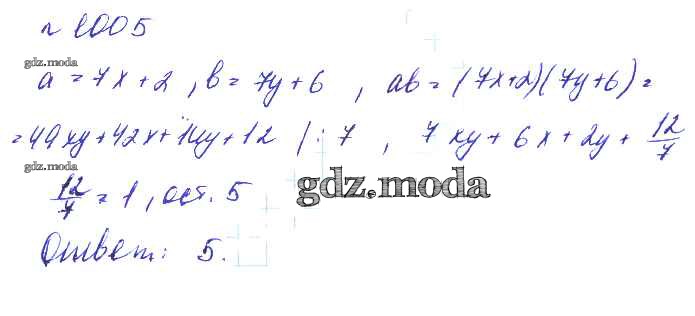 № 1005
gdz.moda
a = 7x + 2 , b = 7y + 6 , ab = (7x+2)(7y+6) =
= 49xy + 42x + 14y + 12 | : 7 , 7xy + 6x + 2y + 12/7
gdz.moda
12/7 = 1, ост. 5
gdz.moda
Ответ: 5.